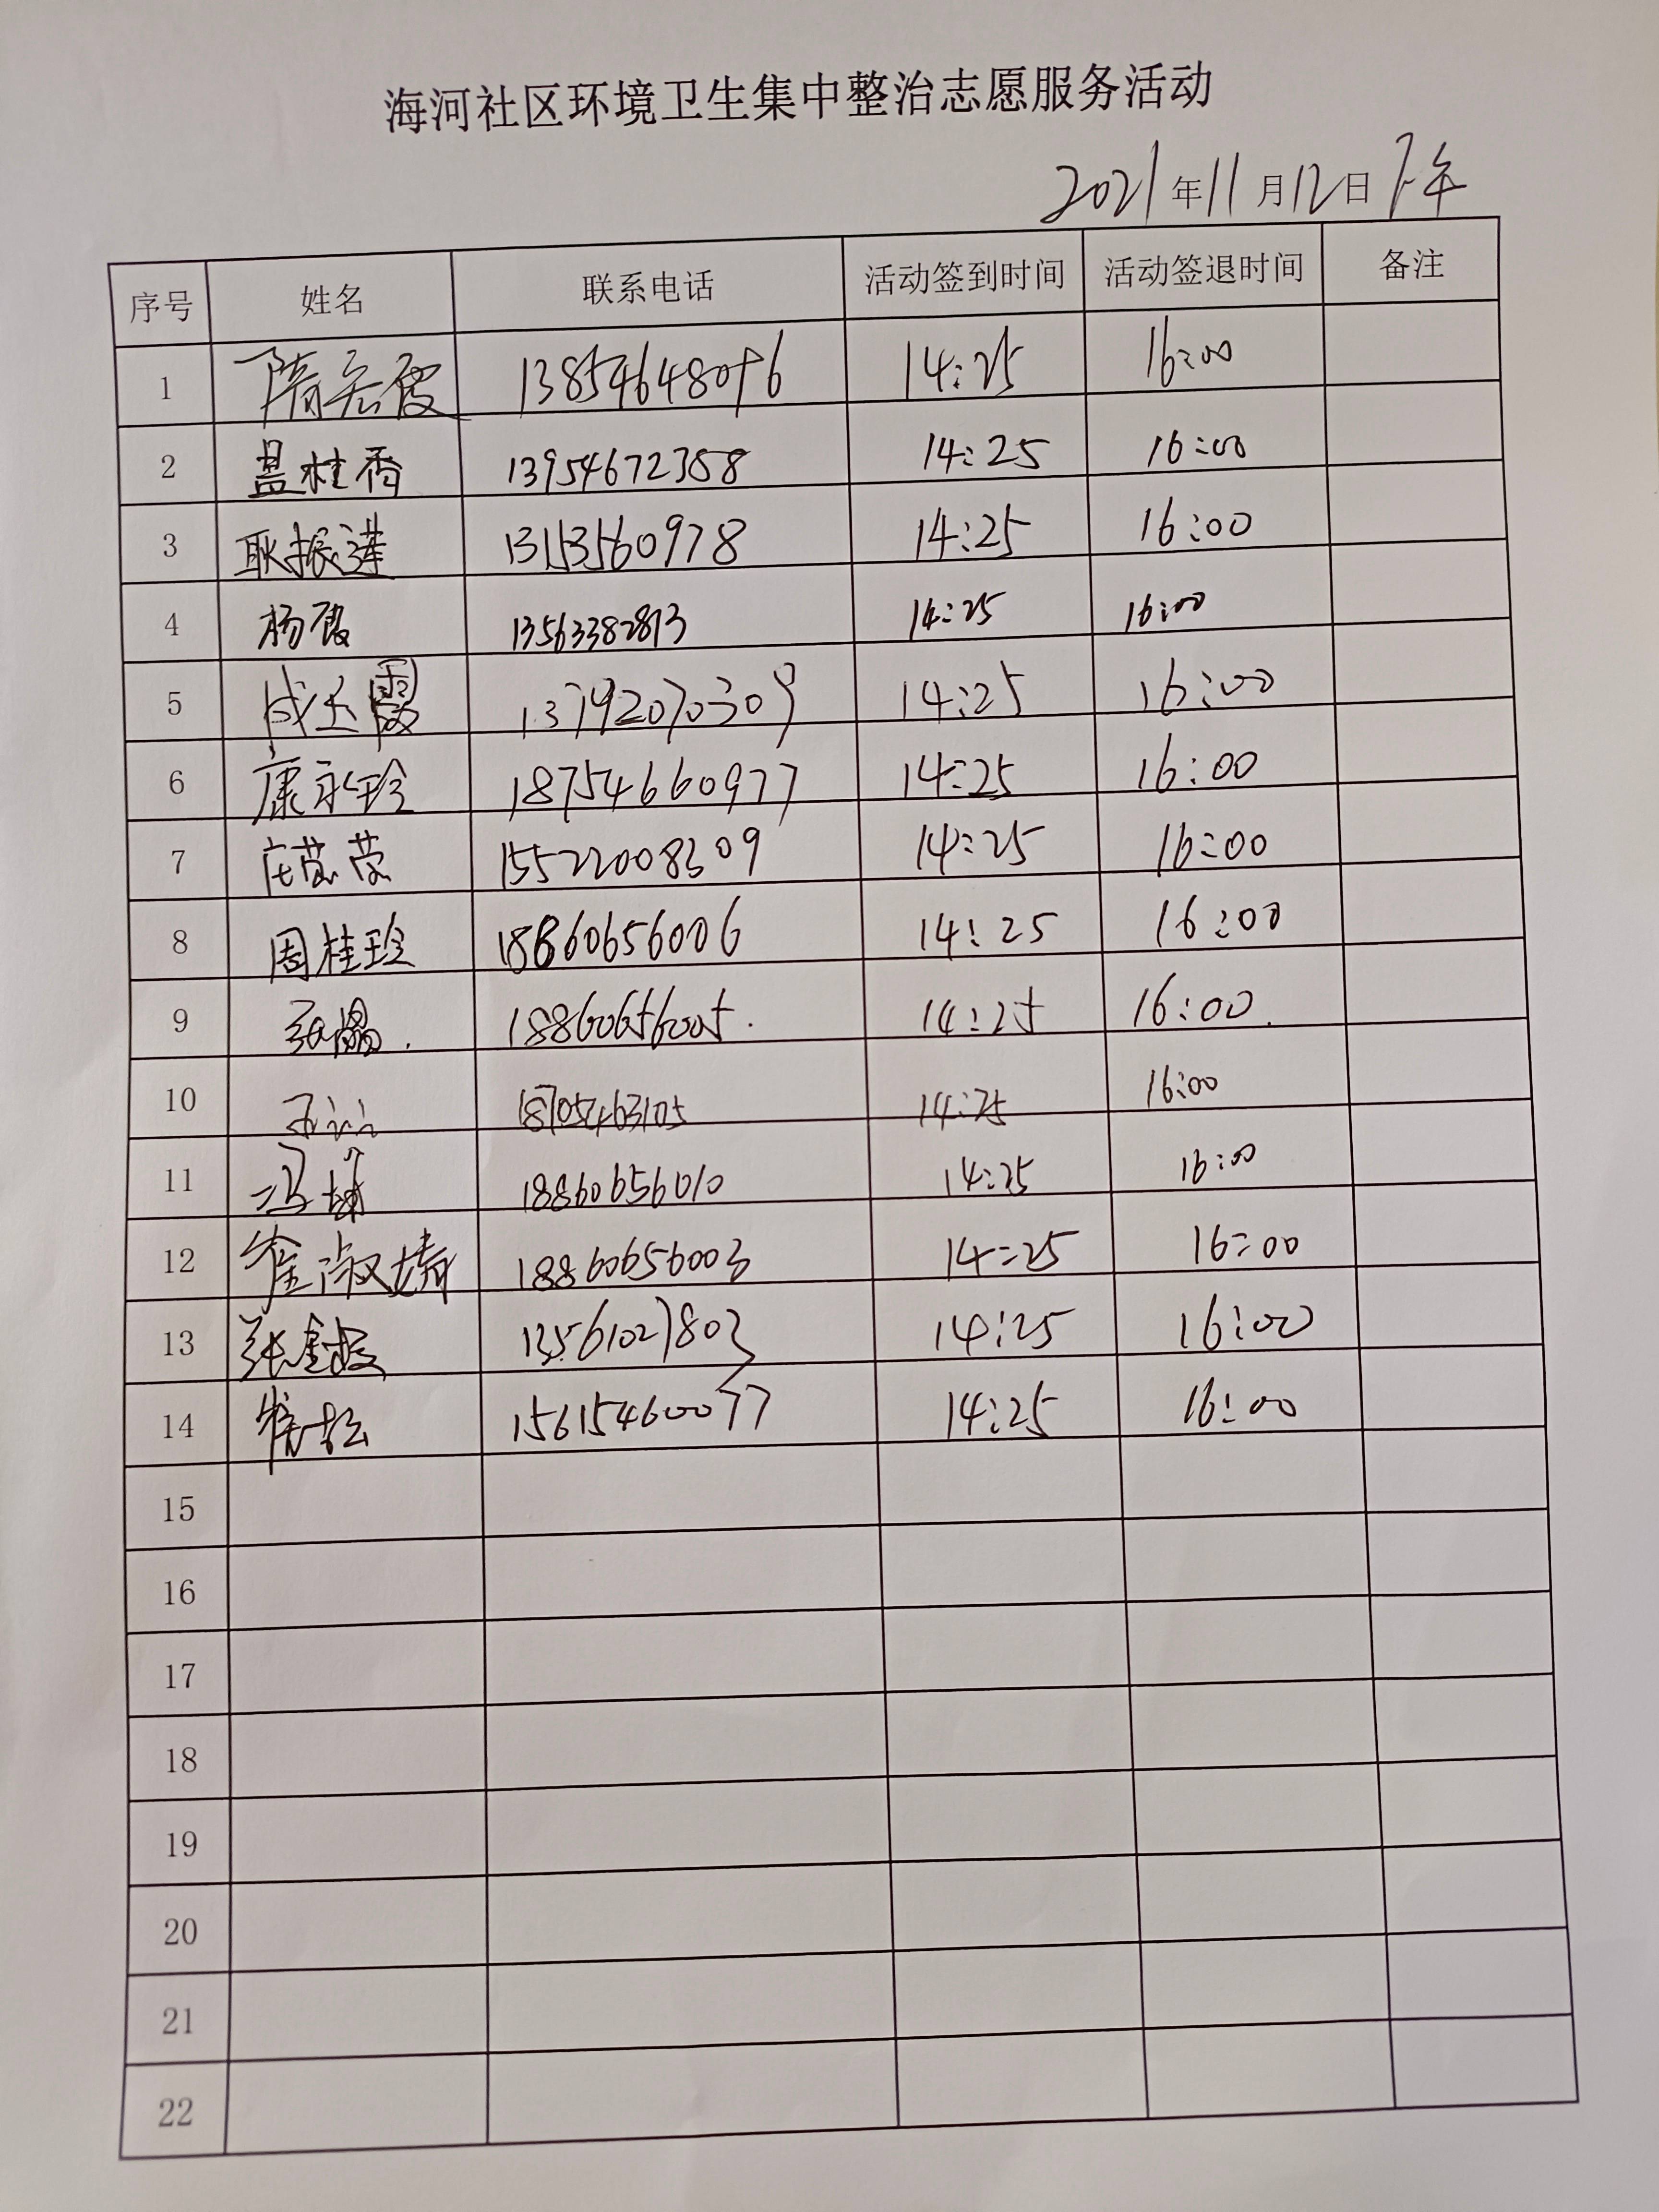 海河社区环境卫生集中整治志愿服务活动
2021年11月12日下午
序号 姓名 联系电话 活动签到时间 活动签退时间 备注
1 隋宏霞 13854648096 14:25 16:00
2 盖桂香 13954672358 14:25 16:00
3 耿振莲 13153560978 14:25 16:00
4 杨霞 13563382813 14:25 16:00
5 成玉霞 13792070309 14:25 16:00
6 康永玲 18754660977 14:25 16:00
7 15522008309 14:25 16:00
8 周桂玲 18860656006 14:25 16:00
9 张 18860656005. 14:25 16:00.
10 18705463105 14:25 16:00
11 冯 18860656010 14:25 16:00
12 崔淑婧 18860656003 14:25 16:00
13 张 13561027803 14:25 16:00
14 15615460077 14:25 16:00
15
16
17
18
19
20
21
22